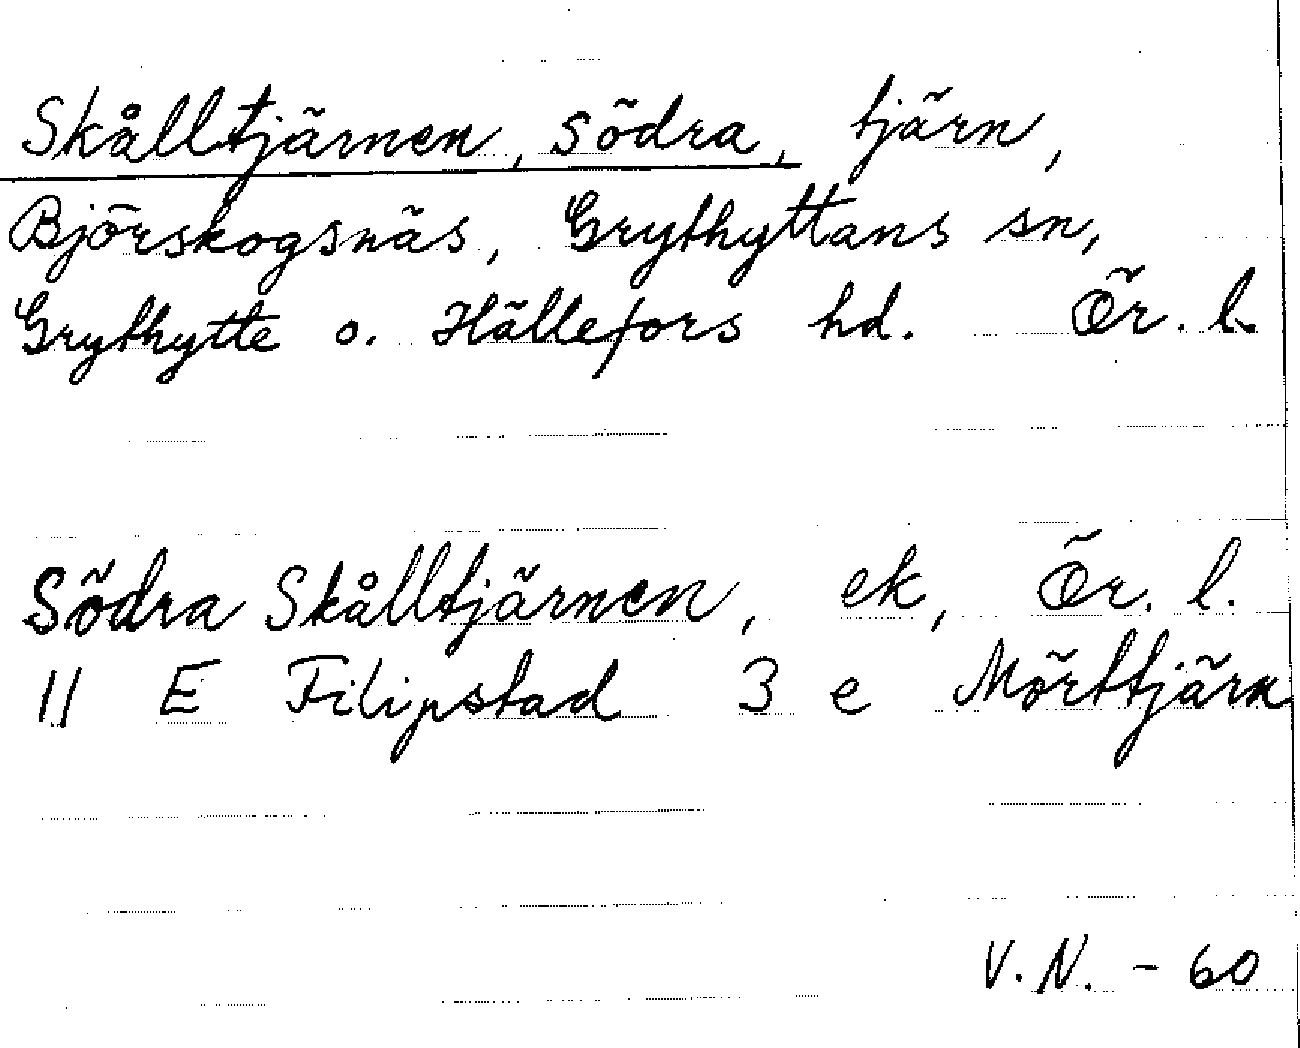 Skålltjärnen, södra, tjärn,
Björskogsnäs, Grythyttans sn,
Grythytte o. Hällefors hd. Ör. l.
Södra Skålltjärnen, ek, Ör. l.
11 E Filipstad 3 e Mörttjärn
V.N. - 60